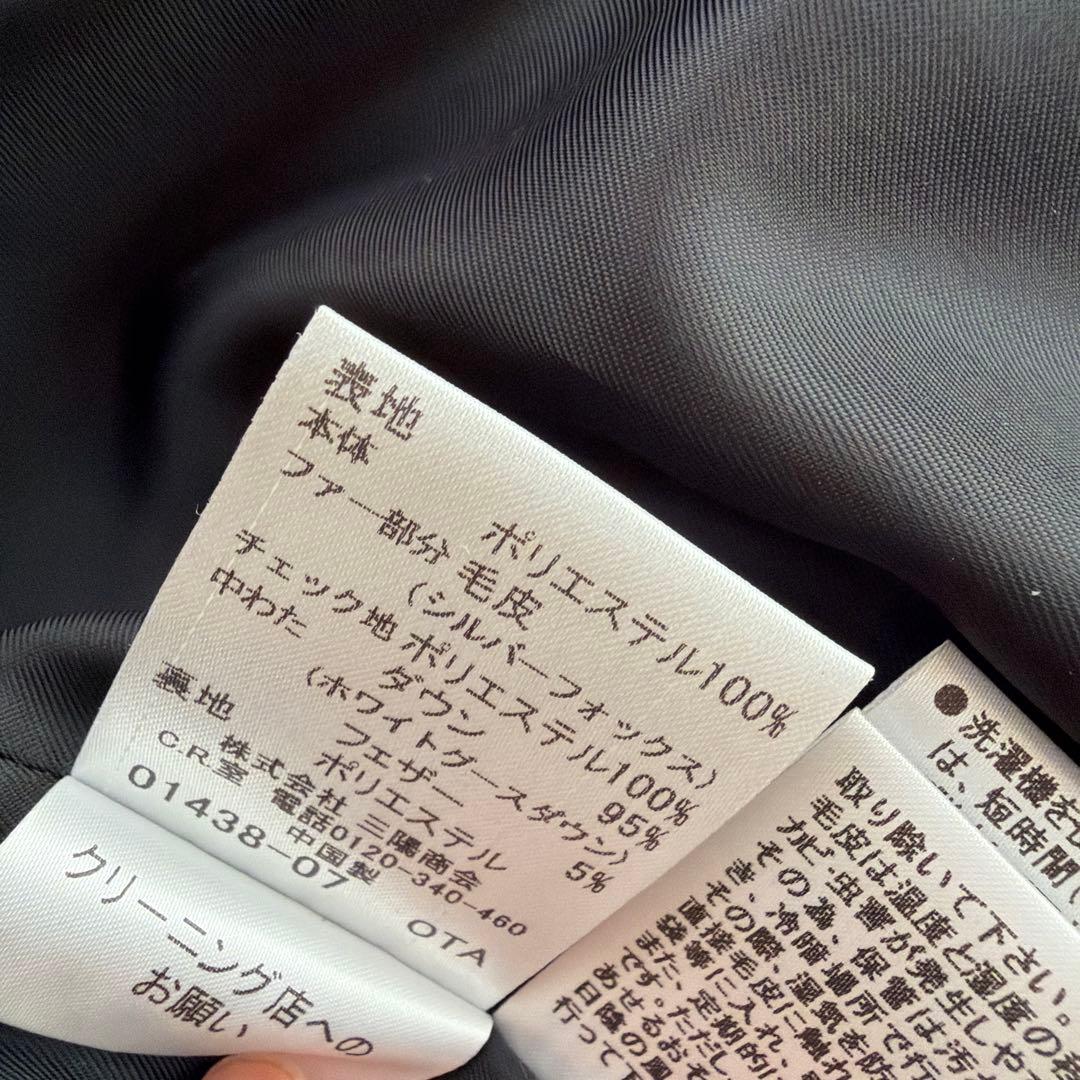 表地
本体 ポリエステル100%
ファー部分 毛皮
(シルバーフォックス)
チェック地 ポリエステル100%
中わた ダウン 95%
(ホワイトグースダウン)
フェザー 5%
裏地 ポリエステル
株式会社 三陽商会
C.R.室 電話0120-340-460
01438-07 中国製 OTA
クリーニング店への
お願い
取り除いて下さい。
毛皮は温度と湿度の
カビ・虫害が発生しや
その為、保管は汚
ぎ、冷暗場所で行
その際、湿気を防
直接毛皮に触れ
袋等に入れ、
また、定期的に
です。ただし
あせるおそ
日陰の風
行って下
●洗濯機を
は、短時間